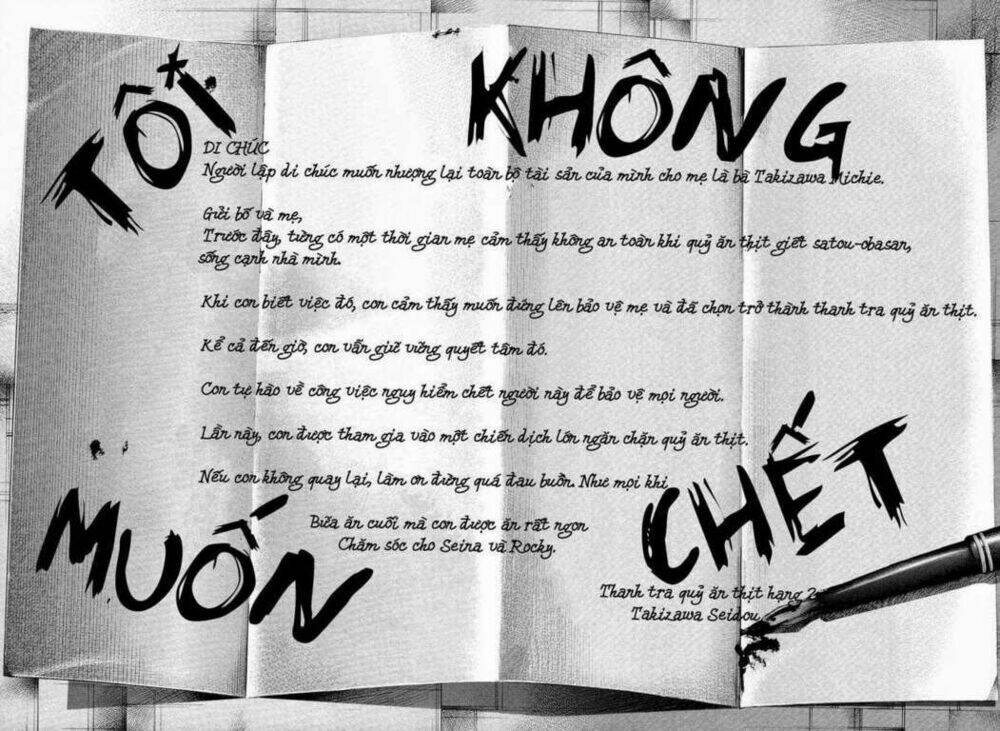 TÔI KHÔNG
DI CHÚC
Người lập di chúc muốn nhượng lại toàn bộ tài sản của mình cho mẹ là bà Takizawa Michie.
Gửi bố và mẹ,
Trước đây, từng có một thời gian mẹ cảm thấy không an toàn khi quỷ ăn thịt giết satou-obasan,
sống cạnh nhà mình.
Khi con biết việc đó, con cảm thấy muốn đứng lên bảo vệ mẹ và đã chọn trở thành thanh tra quỷ ăn thịt.
Kể cả đến giờ, con vẫn giữ vững quyết tâm đó.
Con tự hào về công việc nguy hiểm chết người này để bảo vệ mọi người.
Lần này, con được tham gia vào một chiến dịch lớn ngăn chặn quỷ ăn thịt.
Nếu con không quay lại, làm ơn đừng quá đau buồn. Như mọi khi
Bữa ăn cuối mà con được ăn rất ngon
Chăm sóc cho Seina và Rocky.
MUỐN CHẾT
Thanh tra quỷ ăn thịt hạng 2
Takizawa Seidou